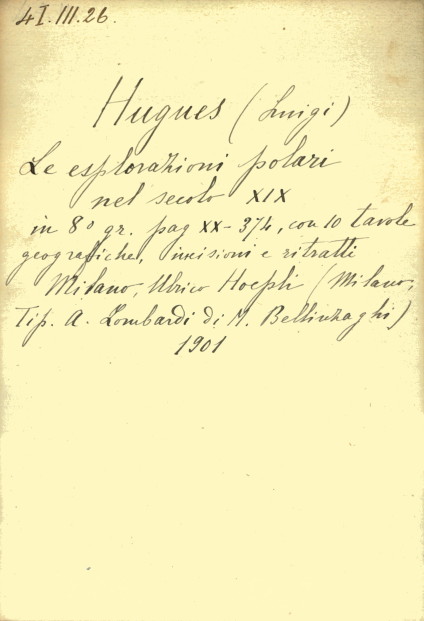 4I.III.26.
Hugues (Luigi)
Le esplorazioni polari
nel secolo XIX
in 8º gr. pag XX-374, con 10 tavole
geografiche, incisioni e ritratti
Milano, Ulrico Hoepli (Milano,
Tip. A. Lombardi di M. Bellinzaghi)
1901